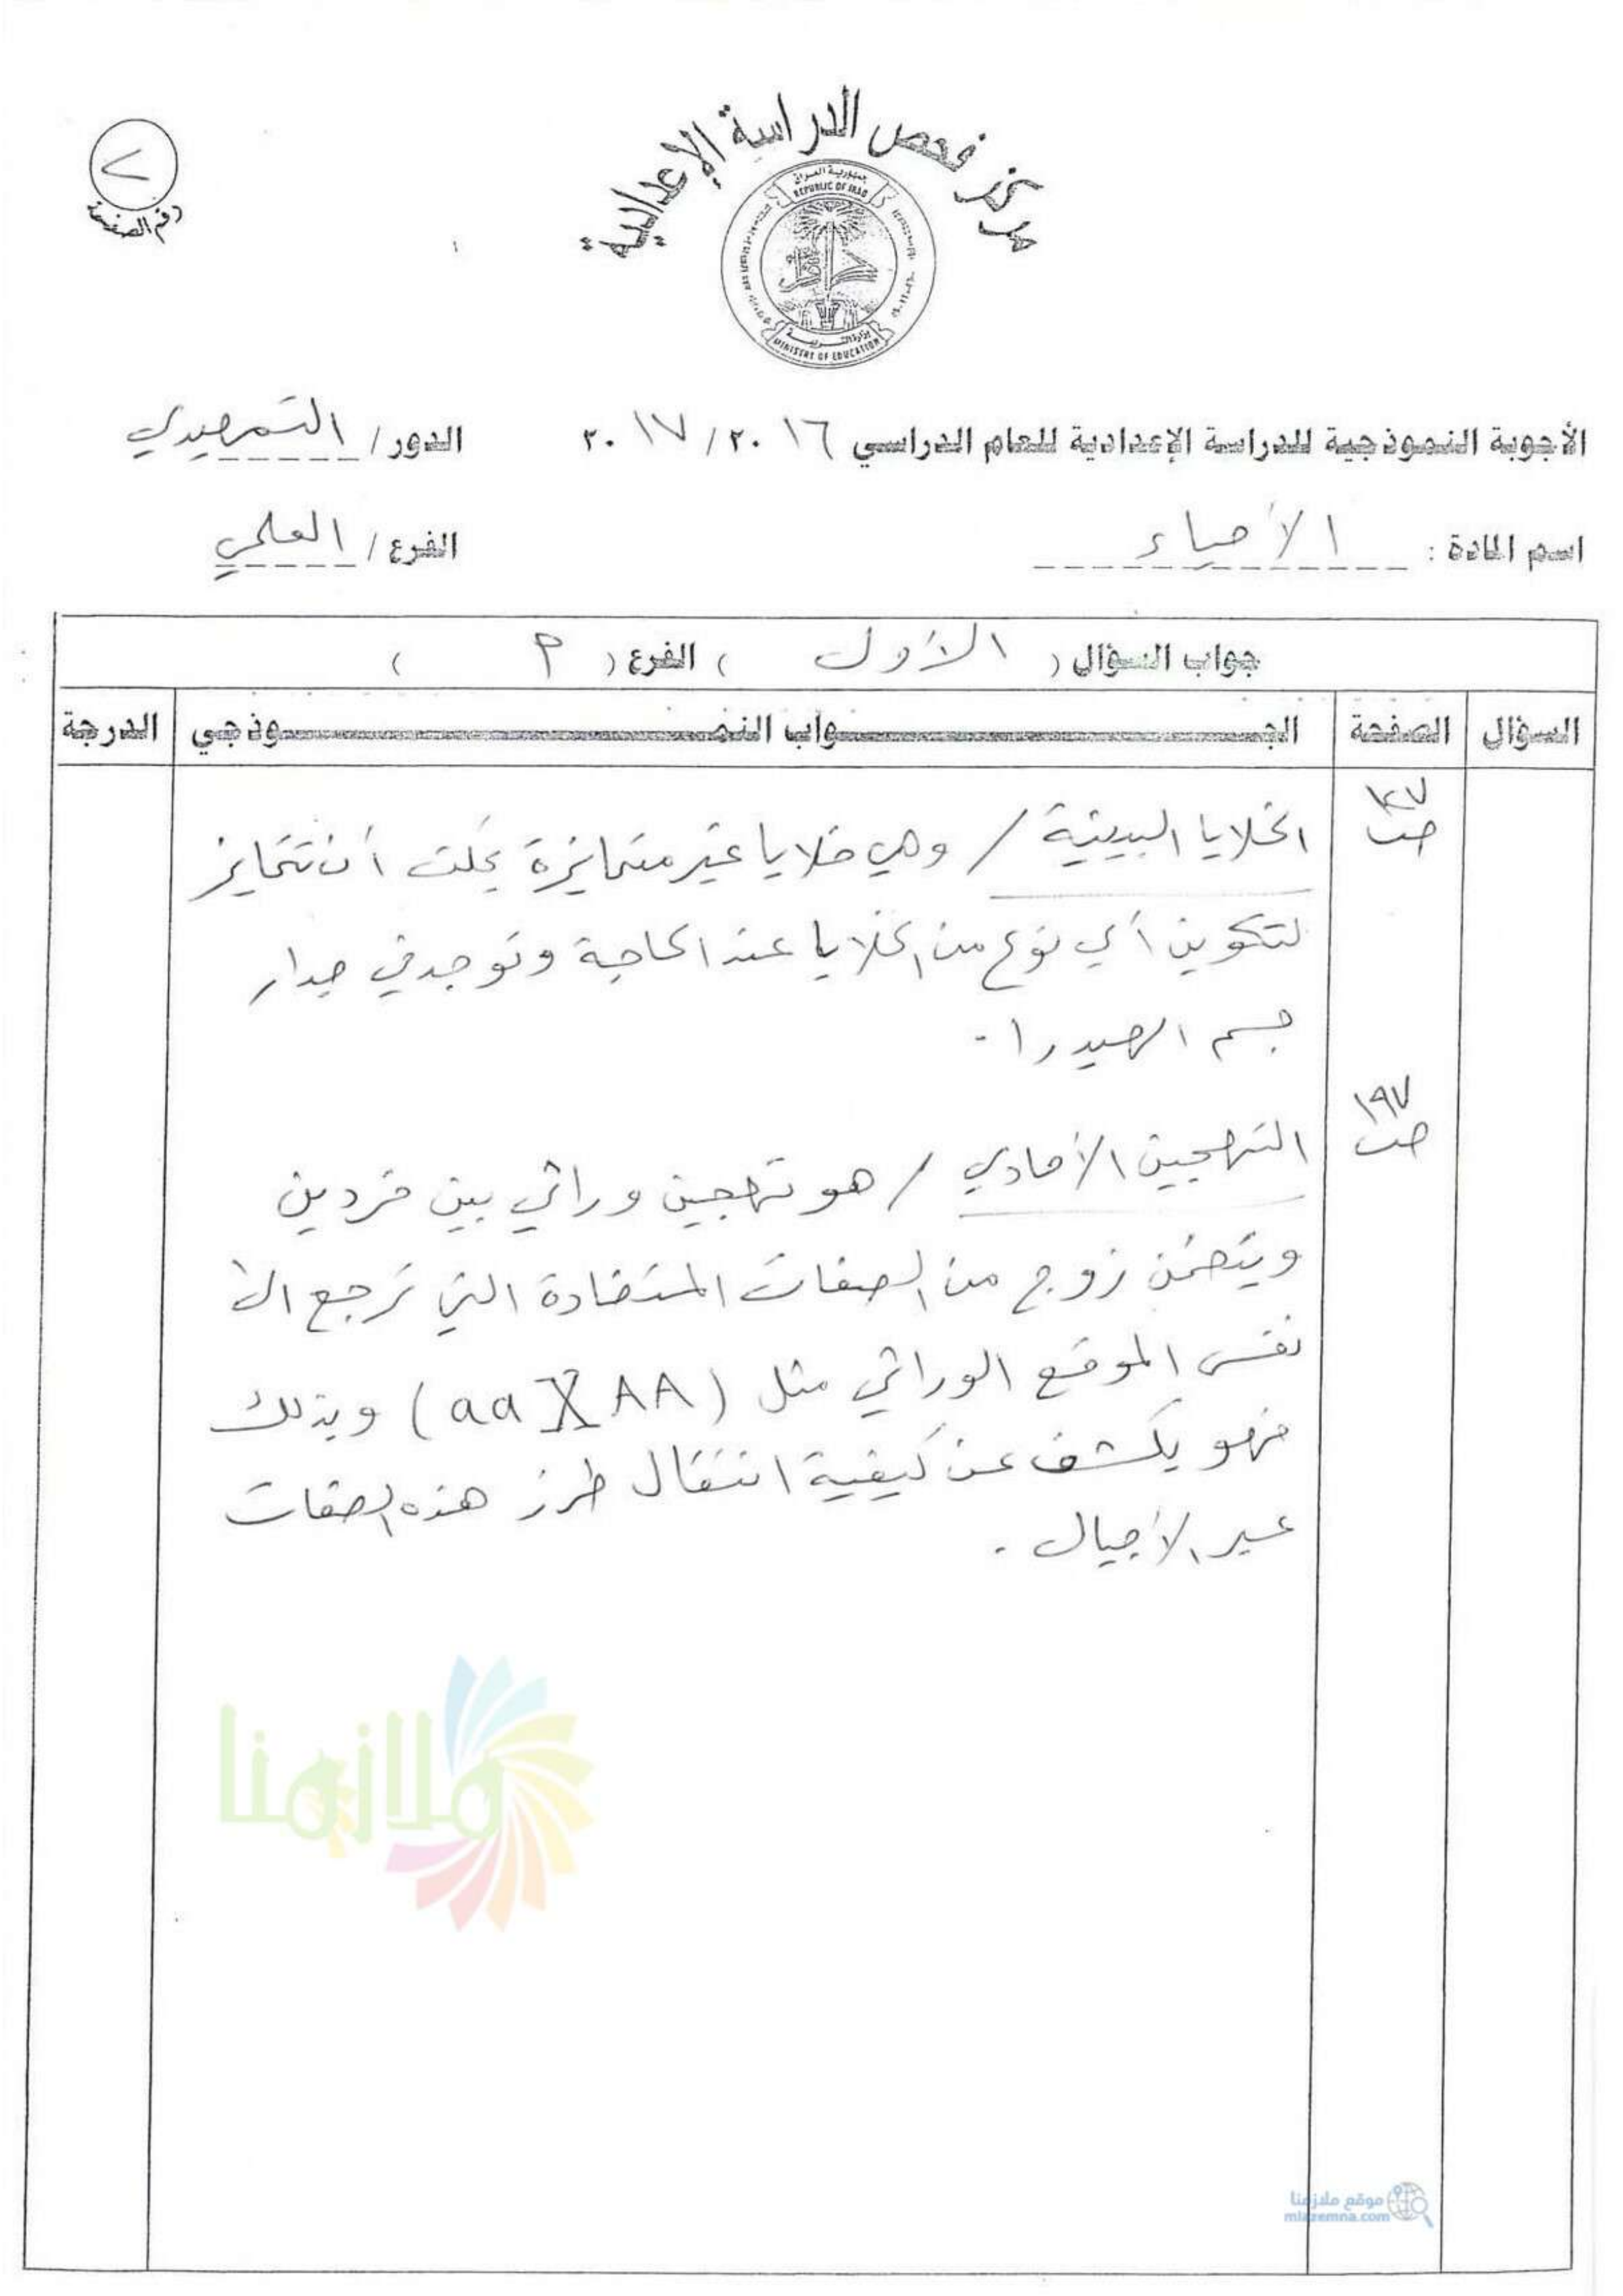 مركز فحص الدراسة الإعدادية
٢
رقم الصفحة
جمهورية العراق
REPUBLIC OF IRAQ
وزارة التربية
MINISTRY OF EDUCATION
الأجوبة النموذجية للدراسة الإعدادية للعام الدراسي ٢٠١٦ / ٢٠١٧ الدور / التمهيدي
اسم المادة : الأحياء الفرع / العلمي
جواب السؤال ( الأول ) الفرع ( م )
السؤال الصفحة الجـــواب النمـــوذجي الدرجة
ص ١٤٧
الخلايا البينية / وهي خلايا غير متمايزة يمكن أن تتمايز
لتكوين أي نوع من الخلايا عند الحاجة وتوجد في جدار
جسم الهيدرا .
ص ١٩٧
التهجين الأحادي / هو تهجين وراثي بين فردين
ويتضمن زوج من الصفات المتضادة التي ترجع الى
نفس الموقع الوراثي مثل (aa X AA) وبذلك
فهو يكشف عن كيفية انتقال طرز هذه الصفات
عبر الأجيال .
ملازمنا
موقع ملازمنا
mlazemna.com